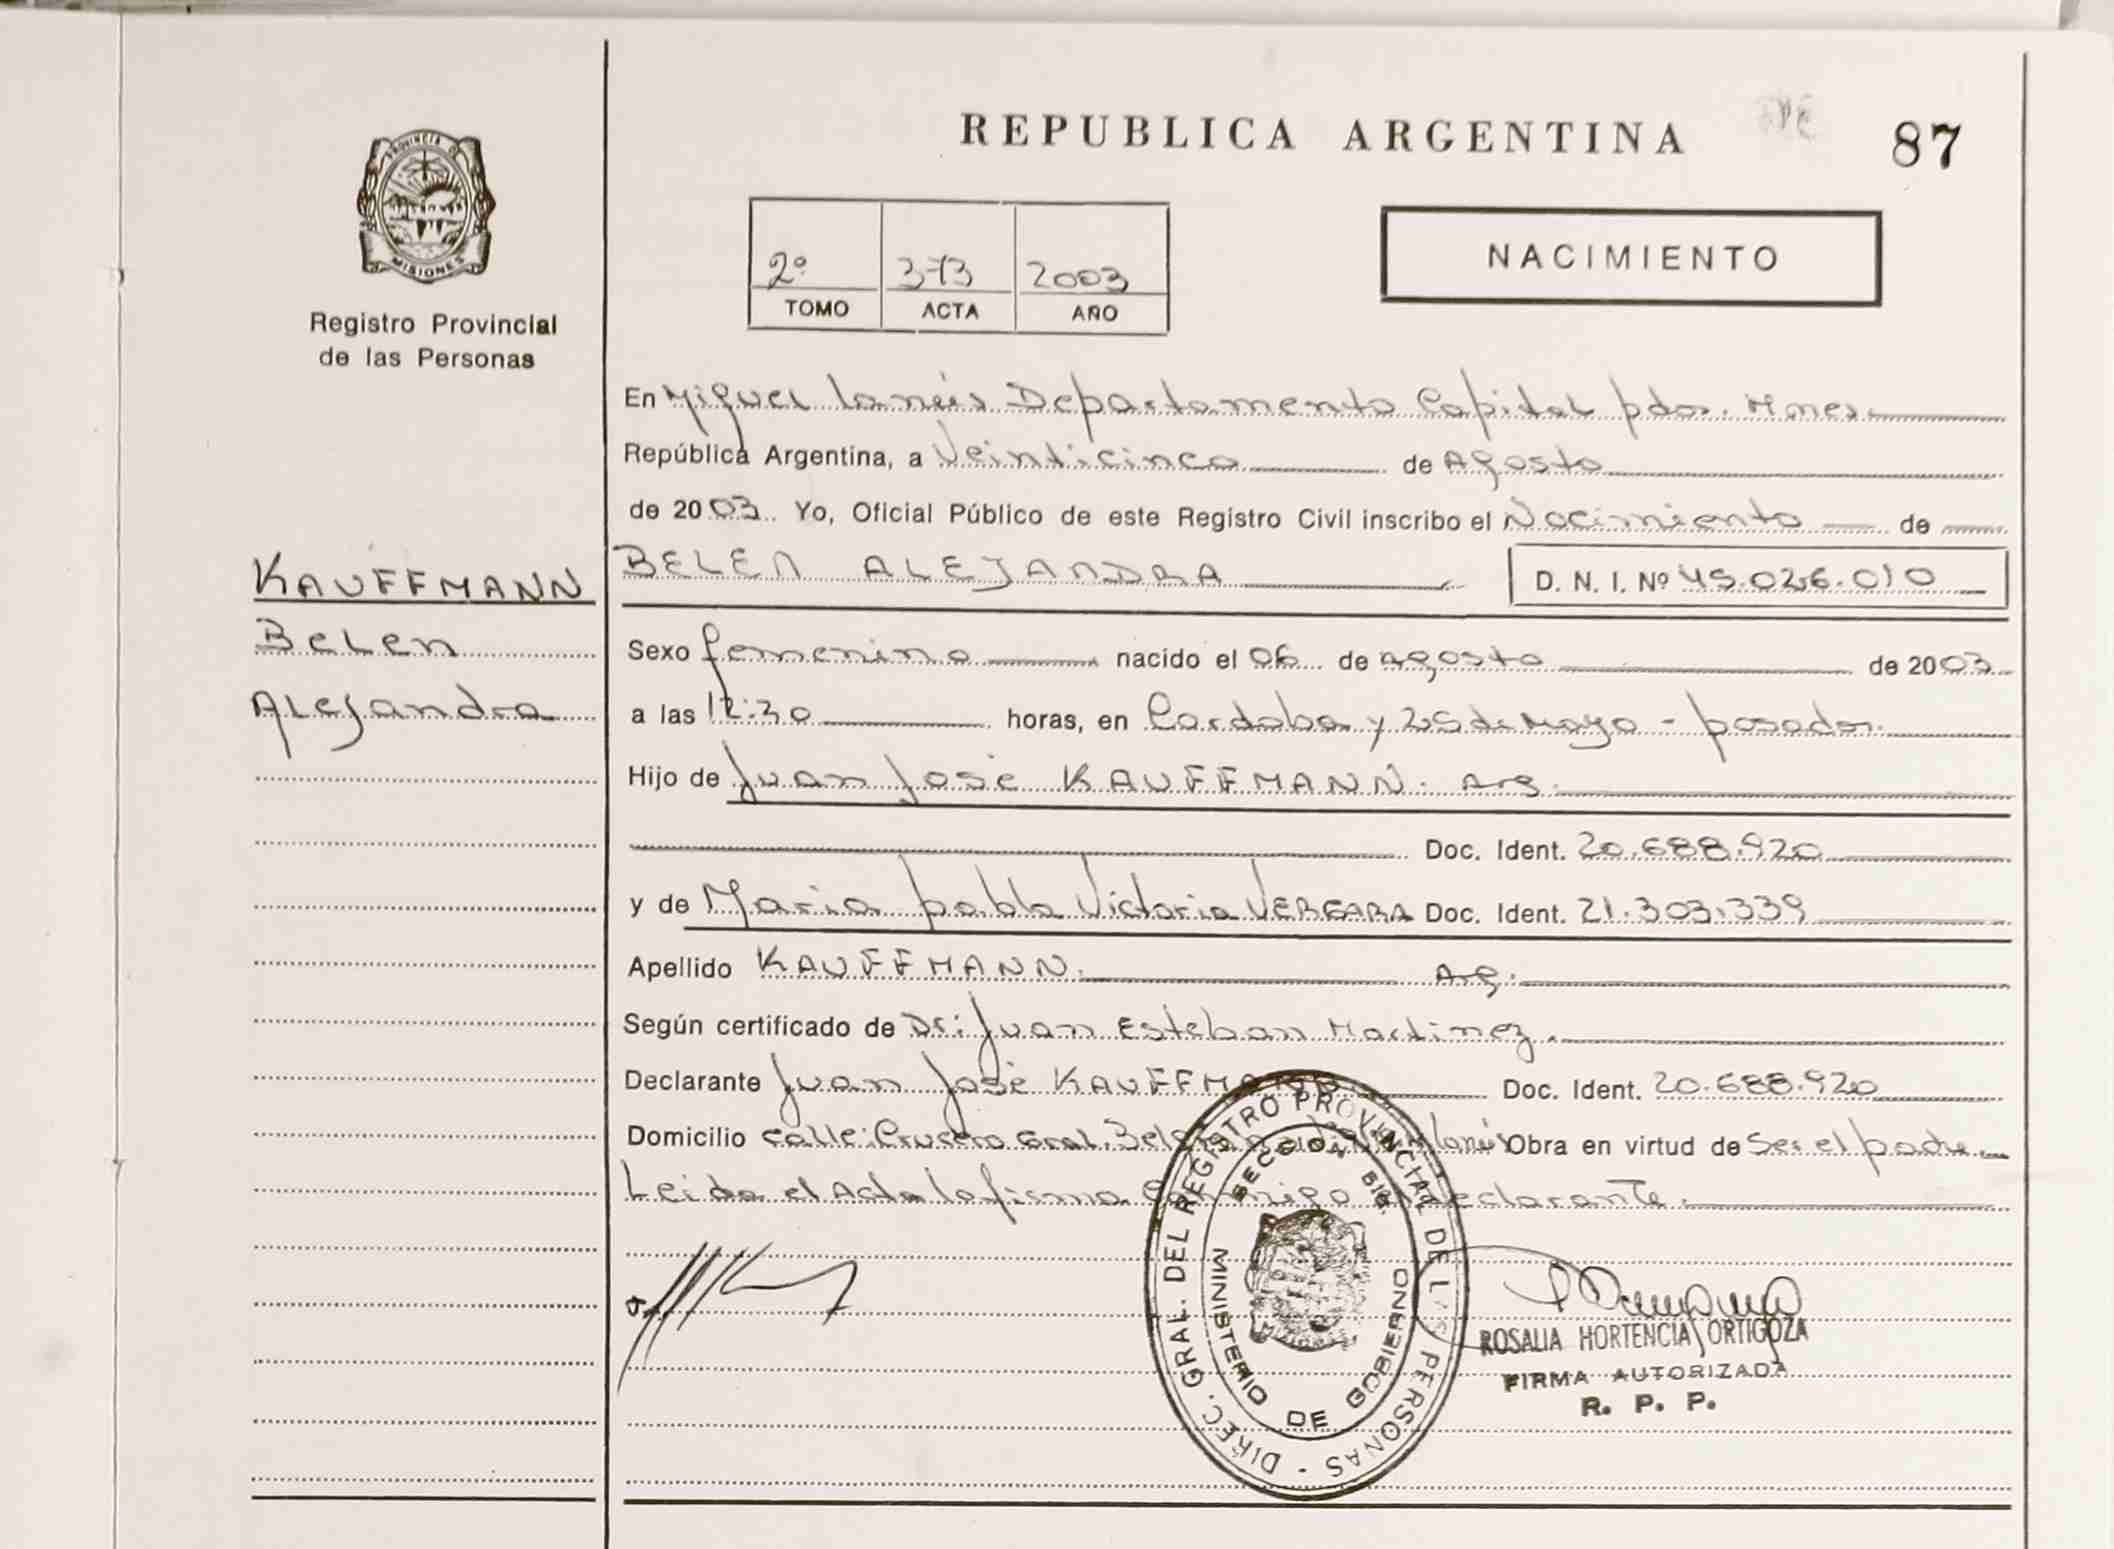 REPUBLICA ARGENTINA
87
PROVINCIA DE MISIONES
Registro Provincial
de las Personas
2º 373 2003
TOMO ACTA AÑO
NACIMIENTO
En Miguel Lanús Departamento Capital pdas. Mnes.
República Argentina, a Veinticinco de Agosto
de 2003. Yo, Oficial Público de este Registro Civil inscribo el Nacimiento de
KAUFFMANN
Belen
Alejandra
BELEN ALEJANDRA D. N. I. Nº 45.026.010
Sexo femenino nacido el 06 de agosto de 2003
a las 12:30 horas, en Cordoba y 25 de Mayo - posadas.
Hijo de Juan José KAUFFMANN. Arg.
Doc. Ident. 20.688.920
y de Maria pabla Victoria VERGARA Doc. Ident. 21.303.339
Apellido KAUFFMANN. Arg.
Según certificado de Dr: Juan Esteban Martinez.
Declarante Juan José KAUFFMANN Doc. Ident. 20.688.920
Domicilio calle: Crucero Gral. Belgrano Lanús Obra en virtud de Ser el padre
Leida el Acta la firma conmigo el declarante.
DIREC. GRAL. DEL REGISTRO PROVINCIAL DE LAS PERSONAS -
SECCION
MINISTERIO DE GOBIERNO
ROSALIA HORTENCIA ORTIGOZA
FIRMA AUTORIZADA
R. P. P.